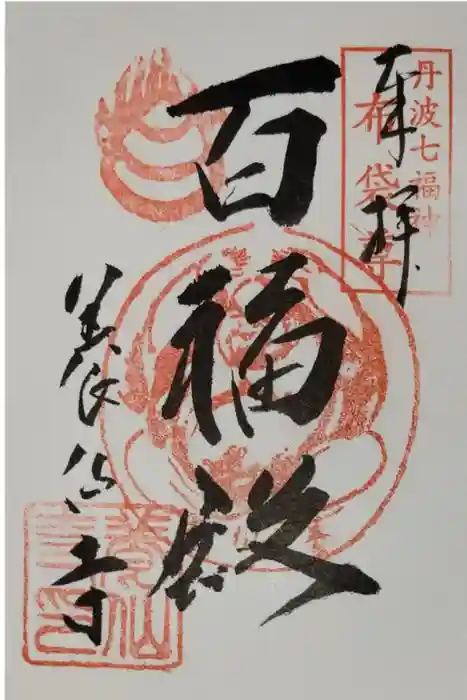 丹波七福神
布袋尊
奉拝
百福殿
養仙寺